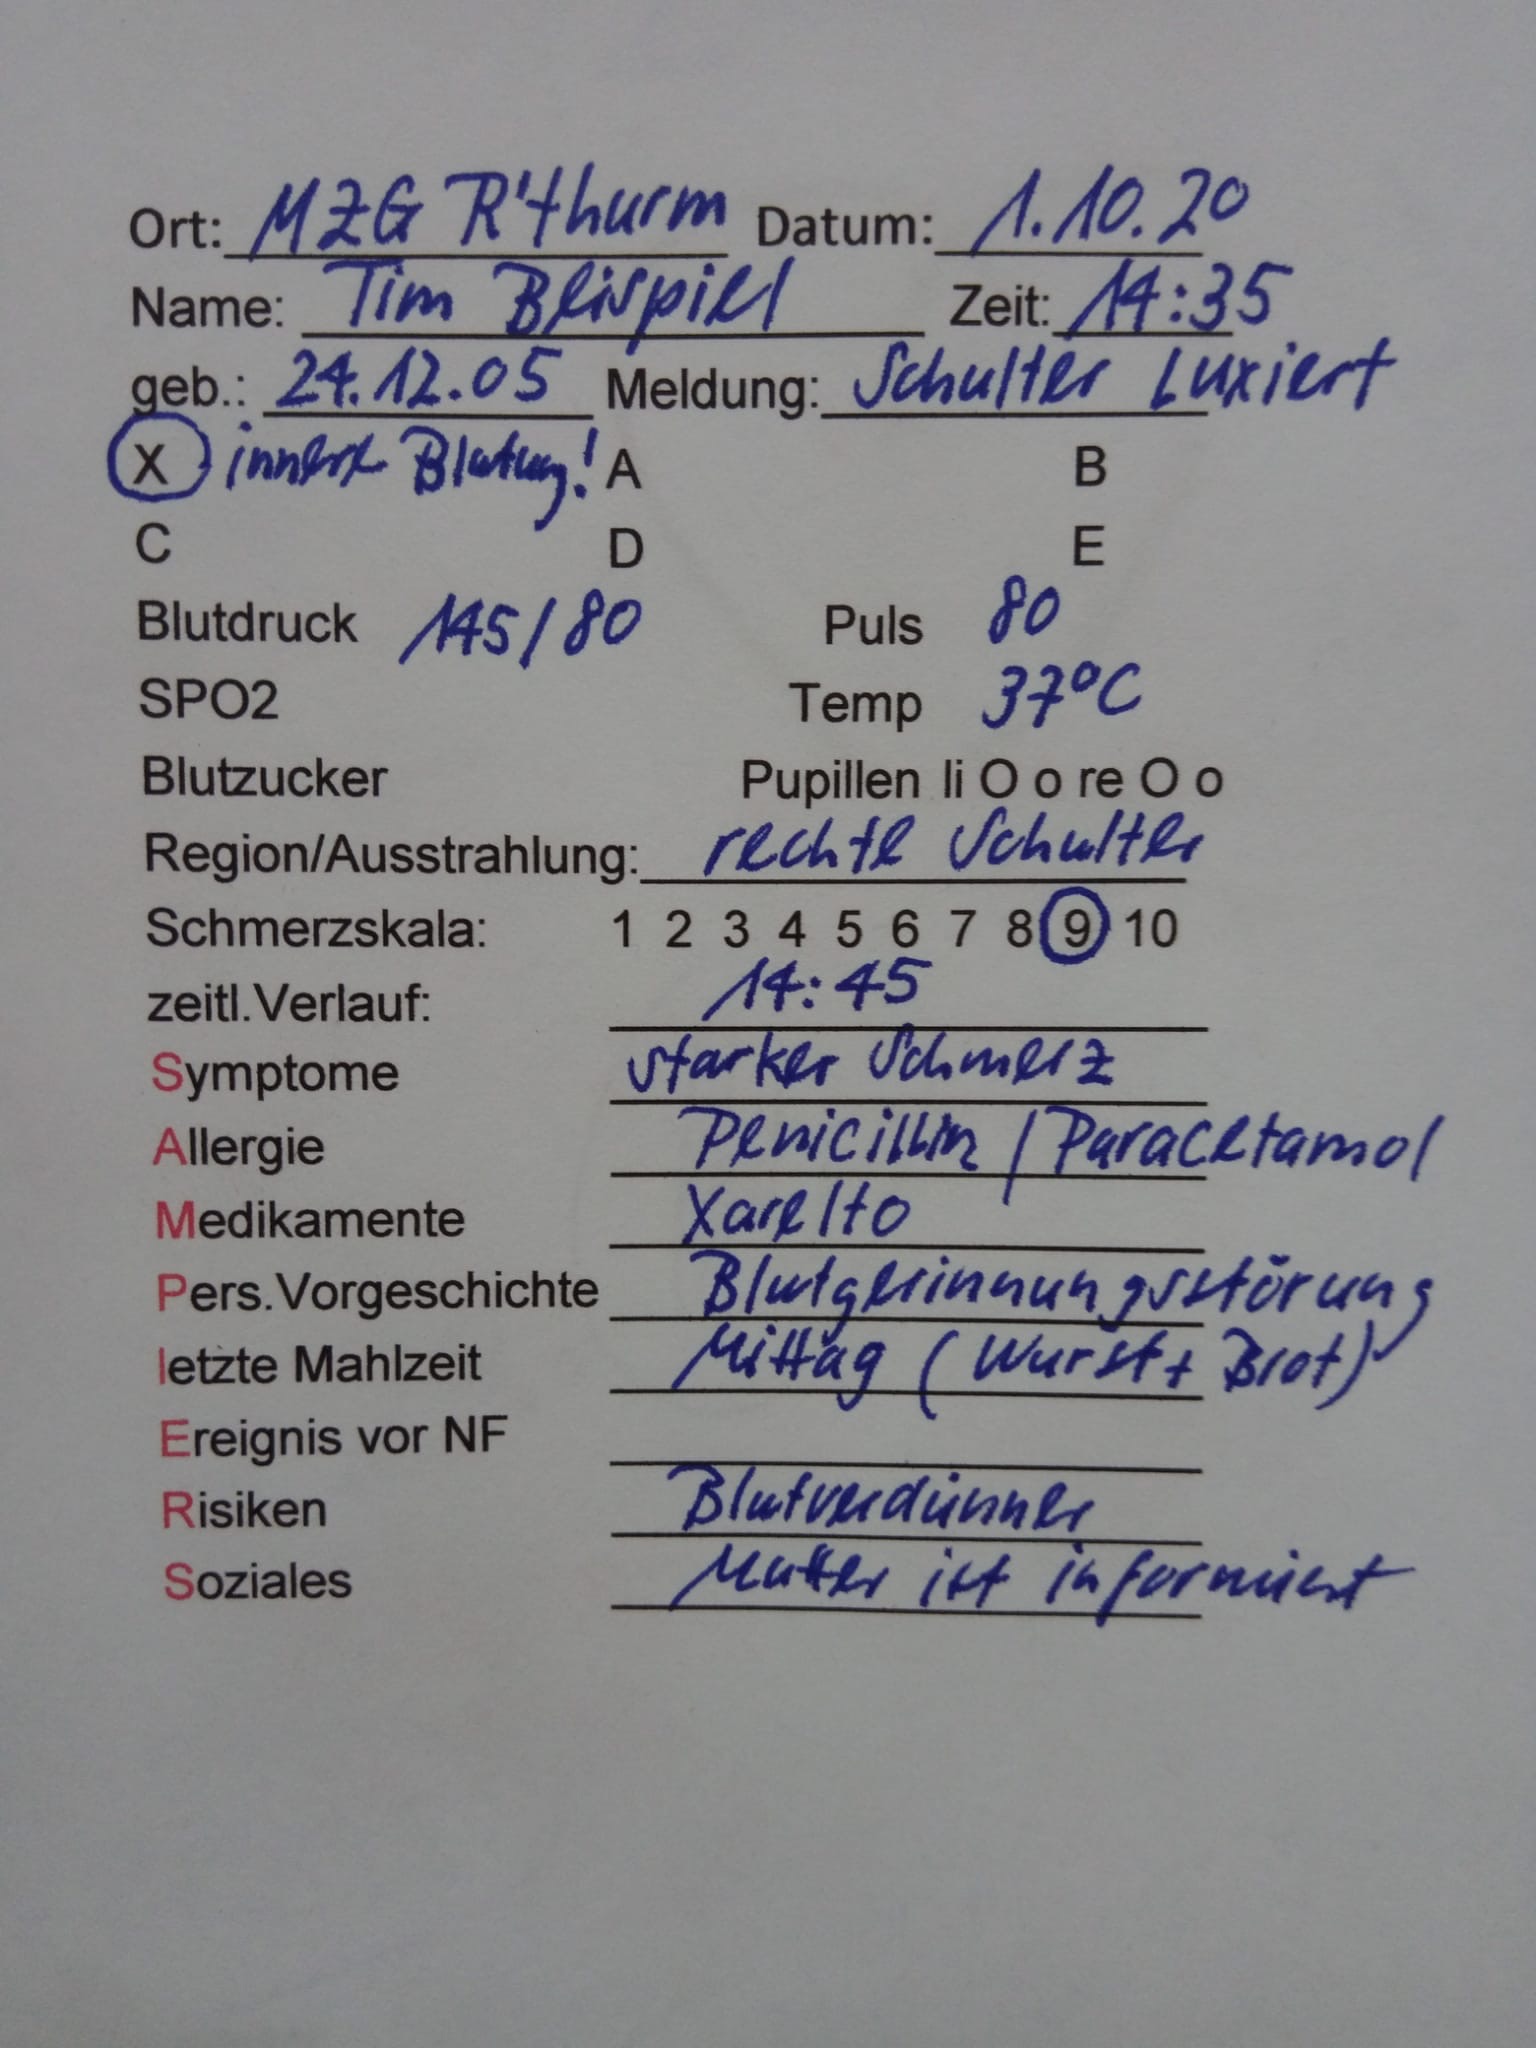 Ort: MZG R'thurm Datum: 1.10.20
Name: Tim Beispiel Zeit: 14:35
geb.: 24.12.05 Meldung: Schulter Luxiert
X innere Blutung! A B
C D E
Blutdruck 145/80 Puls 80
SPO2 Temp 37°C
Blutzucker Pupillen li O o re O o
Region/Ausstrahlung: rechte Schulter
Schmerzskala: 1 2 3 4 5 6 7 8 9 10
zeitl.Verlauf: 14:45
Symptome starker Schmerz
Allergie Penicillin / Paracetamol
Medikamente Xarelto
Pers.Vorgeschichte Blutgerinnungsstörung
letzte Mahlzeit Mittag (Wurst + Brot)
Ereignis vor NF
Risiken Blutverdünner
Soziales Mutter ist informiert